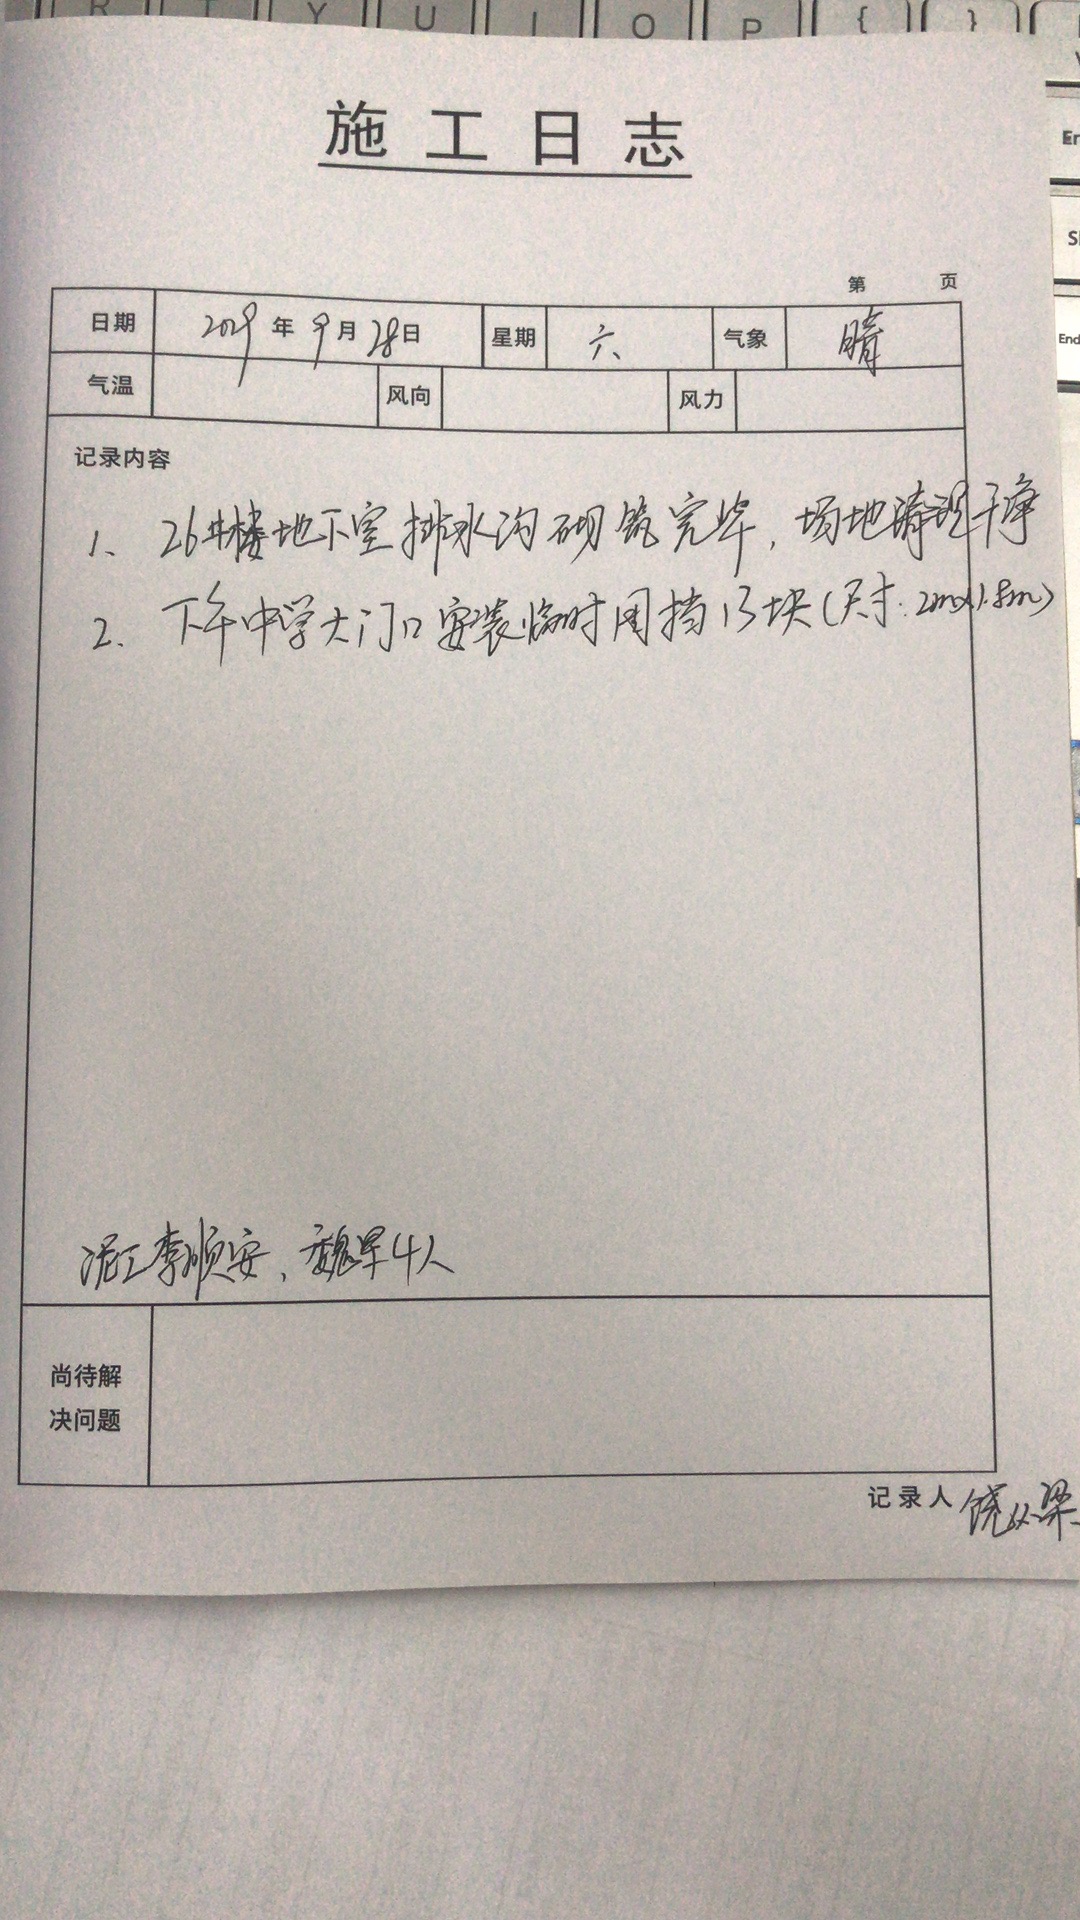 R T Y U I O P { }
En
Sh
End
施工日志
第 页
日期 2019年9月28日 星期 六 气象 晴
气温 风向 风力
记录内容
1、26#楼地下室排水沟砌筑完毕，场地清理干净
2、下午中学大门口安装临时围挡13块(尺寸:2mx1.8m)
泥工李顺安、魏军4人
尚待解
决问题
记录人 饶 梁